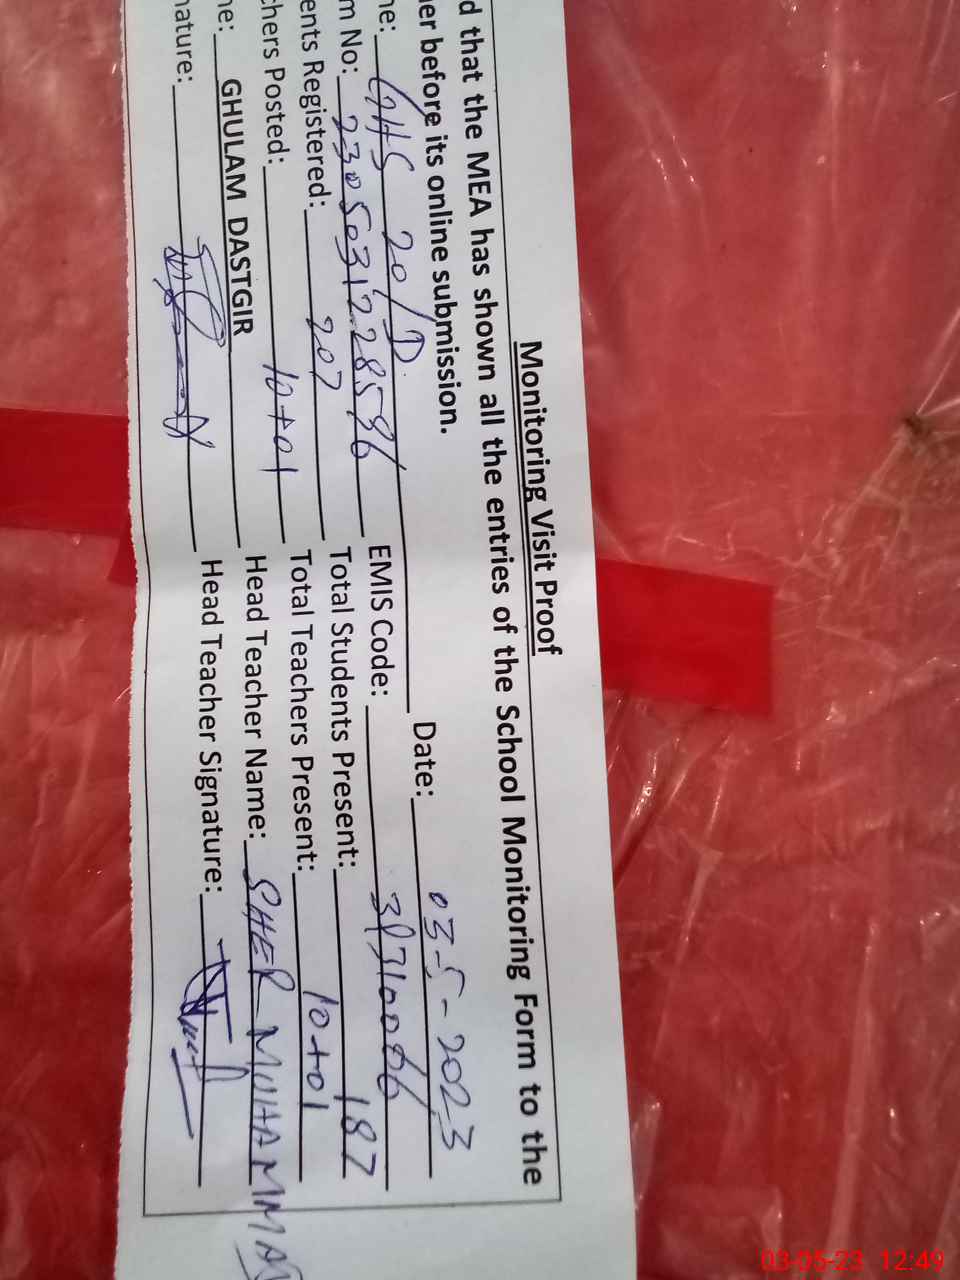 Monitoring Visit Proof
d that the MEA has shown all the entries of the School Monitoring Form to the
er before its online submission.
Date: 03-5-2023
ne: GHS 20/D
m No: 2305031228596 EMIS Code:
ents Registered: 207 Total Students Present: 187
chers Posted: 10+01 Total Teachers Present: 10+01
ne: GHULAM DASTGIR Head Teacher Name: SHER MUHAMMA
nature: Head Teacher Signature:
03-05-23 12:49